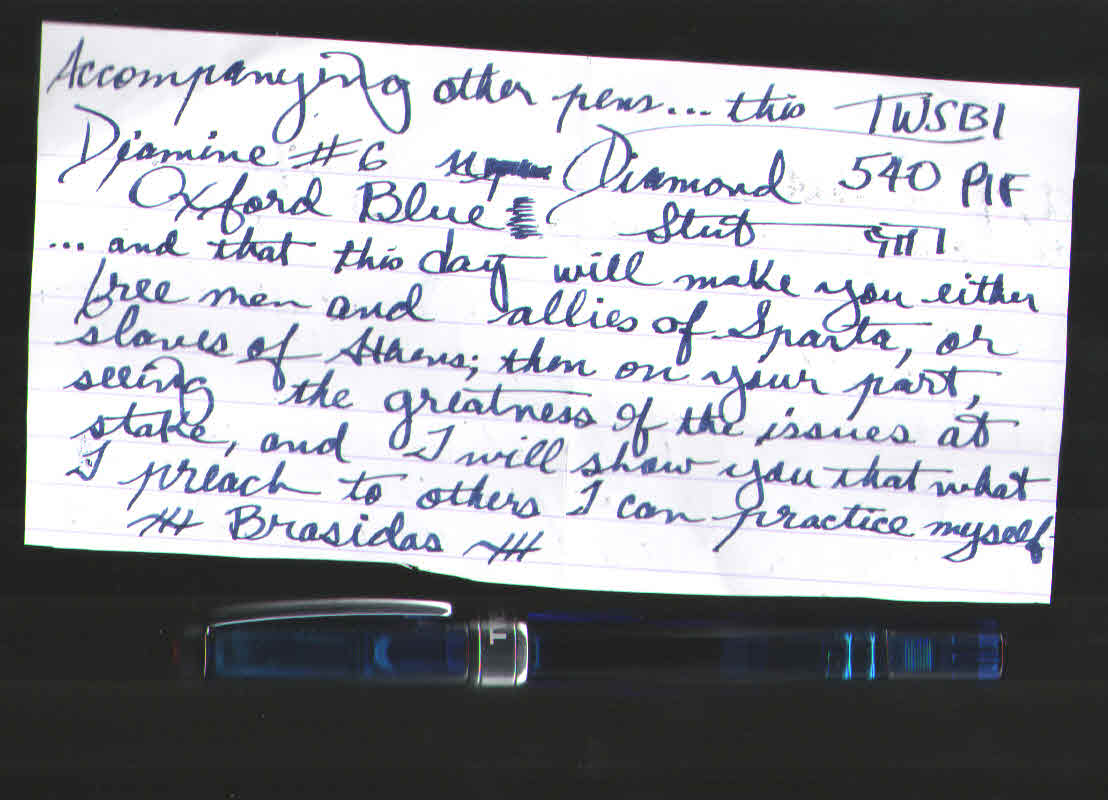 Accompanying other pens... this TWSBI
Diamine #6 Diamond 540 PIF
Oxford Blue Stub
... and that this day will make you either
free men and allies of Sparta, or
slaves of Athens; then on your part,
seeing the greatness of the issues at
stake, and I will show you that what
I preach to others I can practice myself.
Brasidas
T